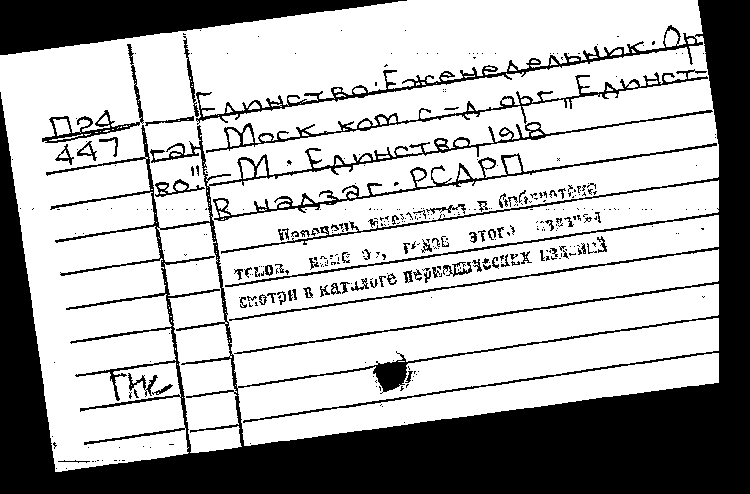 Единство: Еженедельник: Ор-
П24
447
ган Моск. ком. с.-д. орг. „Единст-
во". – М.: Единство, 1918
В надзаг.: РСДРП
Перечень имеющихся в библиотеке
томов, номеров, годов этого издания
смотри в каталоге периодических изданий
ГНК